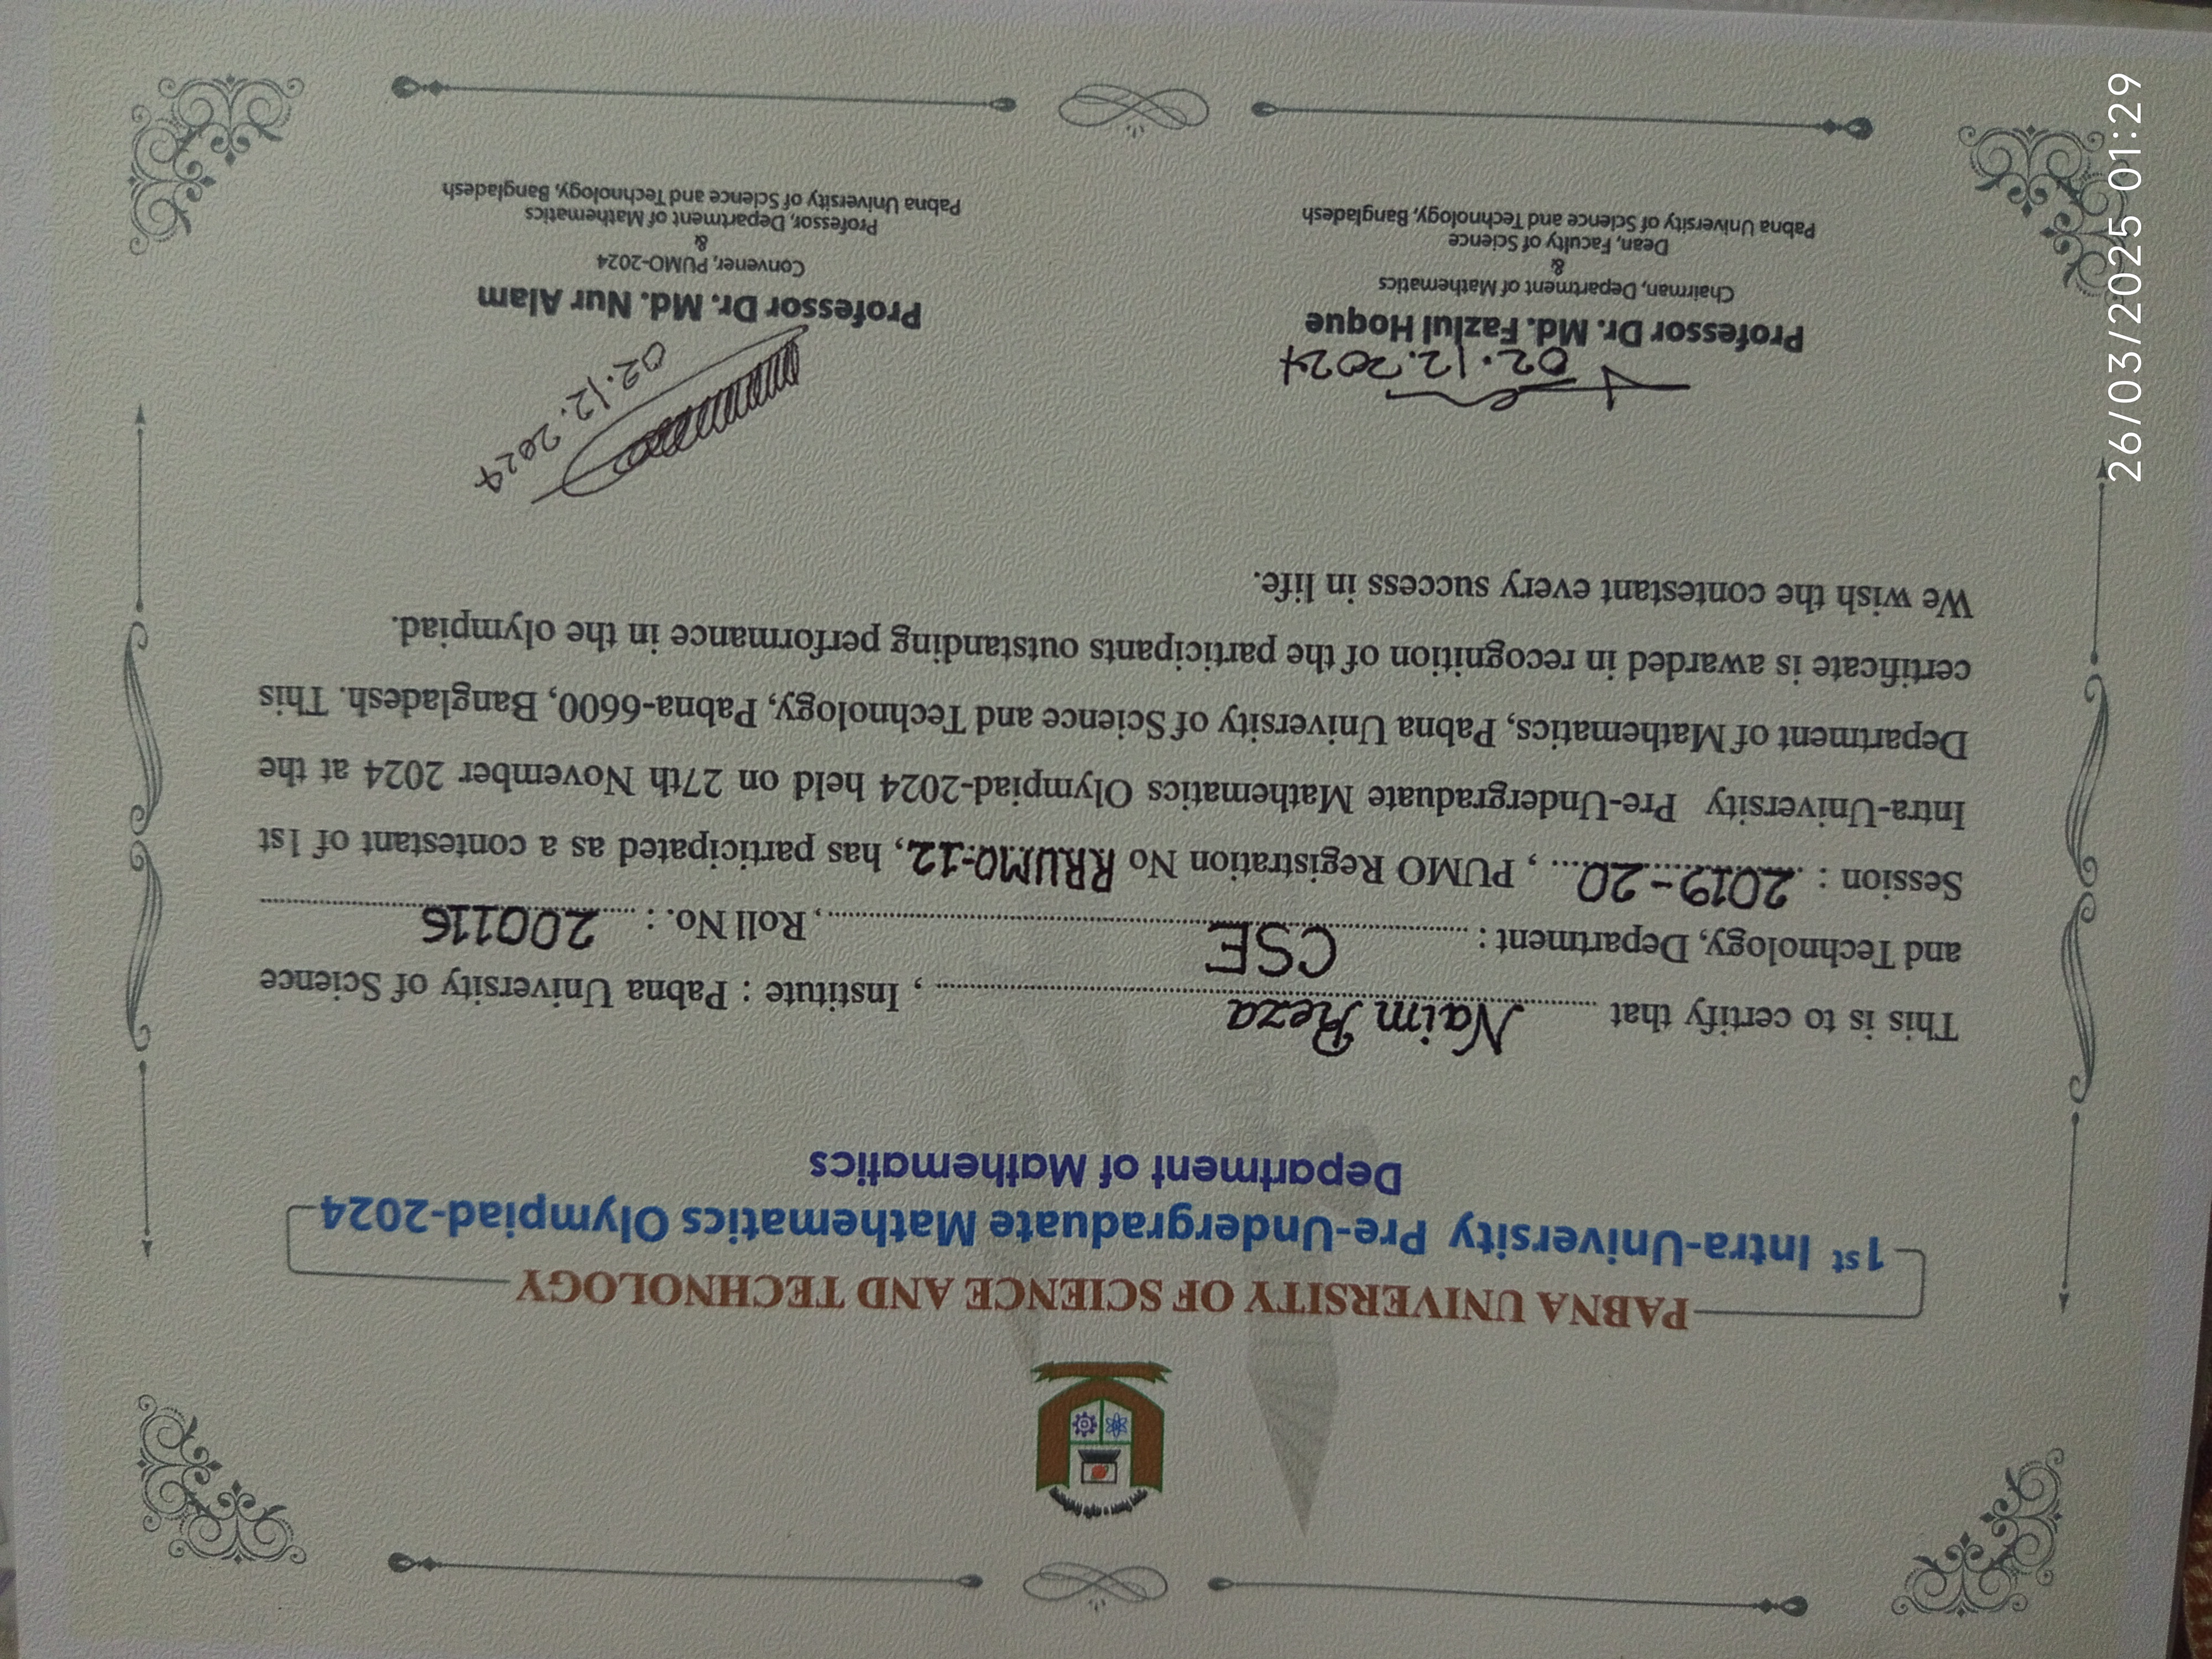 PABNA UNIVERSITY OF SCIENCE AND TECHNOLOGY
1st Intra-University Pre-Undergraduate Mathematics Olympiad-2024
Department of Mathematics
This is to certify that Naim Reza, Institute : Pabna University of Science
and Technology, Department : CSE, Roll No. : 200116
Session : 2019-20, PUMO Registration No RRUMO-12, has participated as a contestant of 1st
Intra-University Pre-Undergraduate Mathematics Olympiad-2024 held on 27th November 2024 at the
Department of Mathematics, Pabna University of Science and Technology, Pabna-6600, Bangladesh. This
certificate is awarded in recognition of the participants outstanding performance in the olympiad.
We wish the contestant every success in life.
02.12.2024
Professor Dr. Md. Fazlul Hoque
Chairman, Department of Mathematics
&
Dean, Faculty of Science
Pabna University of Science and Technology, Bangladesh
02.12.2024
Professor Dr. Md. Nur Alam
Convener, PUMO-2024
&
Professor, Department of Mathematics
Pabna University of Science and Technology, Bangladesh
26/03/2025 01:29